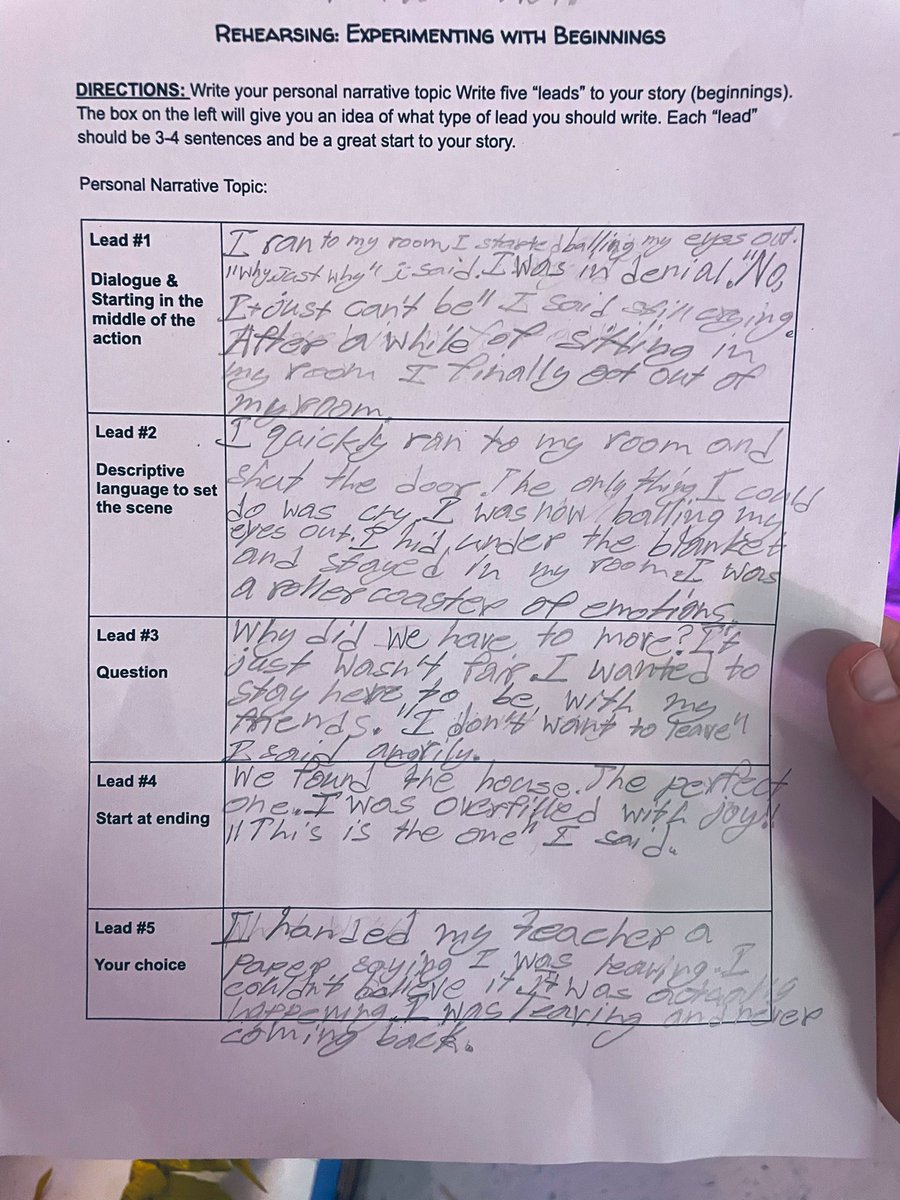 REHEARSING: EXPERIMENTING WITH BEGINNINGS
DIRECTIONS: Write your personal narrative topic Write five “leads” to your story (beginnings).
The box on the left will give you an idea of what type of lead you should write. Each “lead”
should be 3-4 sentences and be a great start to your story.
Personal Narrative Topic:
Lead #1
Dialogue &
Starting in the
middle of the
action
I ran to my room, I started balling my eyes out.
"Why, Just why" i said. I was in denial. "No,
It just can't be" I said still crying.
After a while of sitting in
my room I finally got out of
my room.
Lead #2
Descriptive
language to set
the scene
I quickly ran to my room and
shut the door. The only thing I could
do was cry. I was now balling my
eyes out. I hid under the blanket
and stayed in my room. I was
a roller coaster of emotions.
Lead #3
Question
Why did we have to move? It
just wasn't fair. I wanted to
stay here, to be with my
friends. "I don't want to leave"
I said angrily.
Lead #4
Start at ending
We found the house. The perfect
one. I was overfilled with joy!!
"This is the one" I said.
Lead #5
Your choice
I handed my teacher a
paper saying I was leaving. I
couldn't believe it. It was actually
happening. I was leaving and never
coming back.